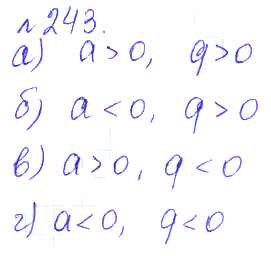 № 243.
а) a > 0, q > 0
б) a < 0, q > 0
в) a > 0, q < 0
г) a < 0, q < 0